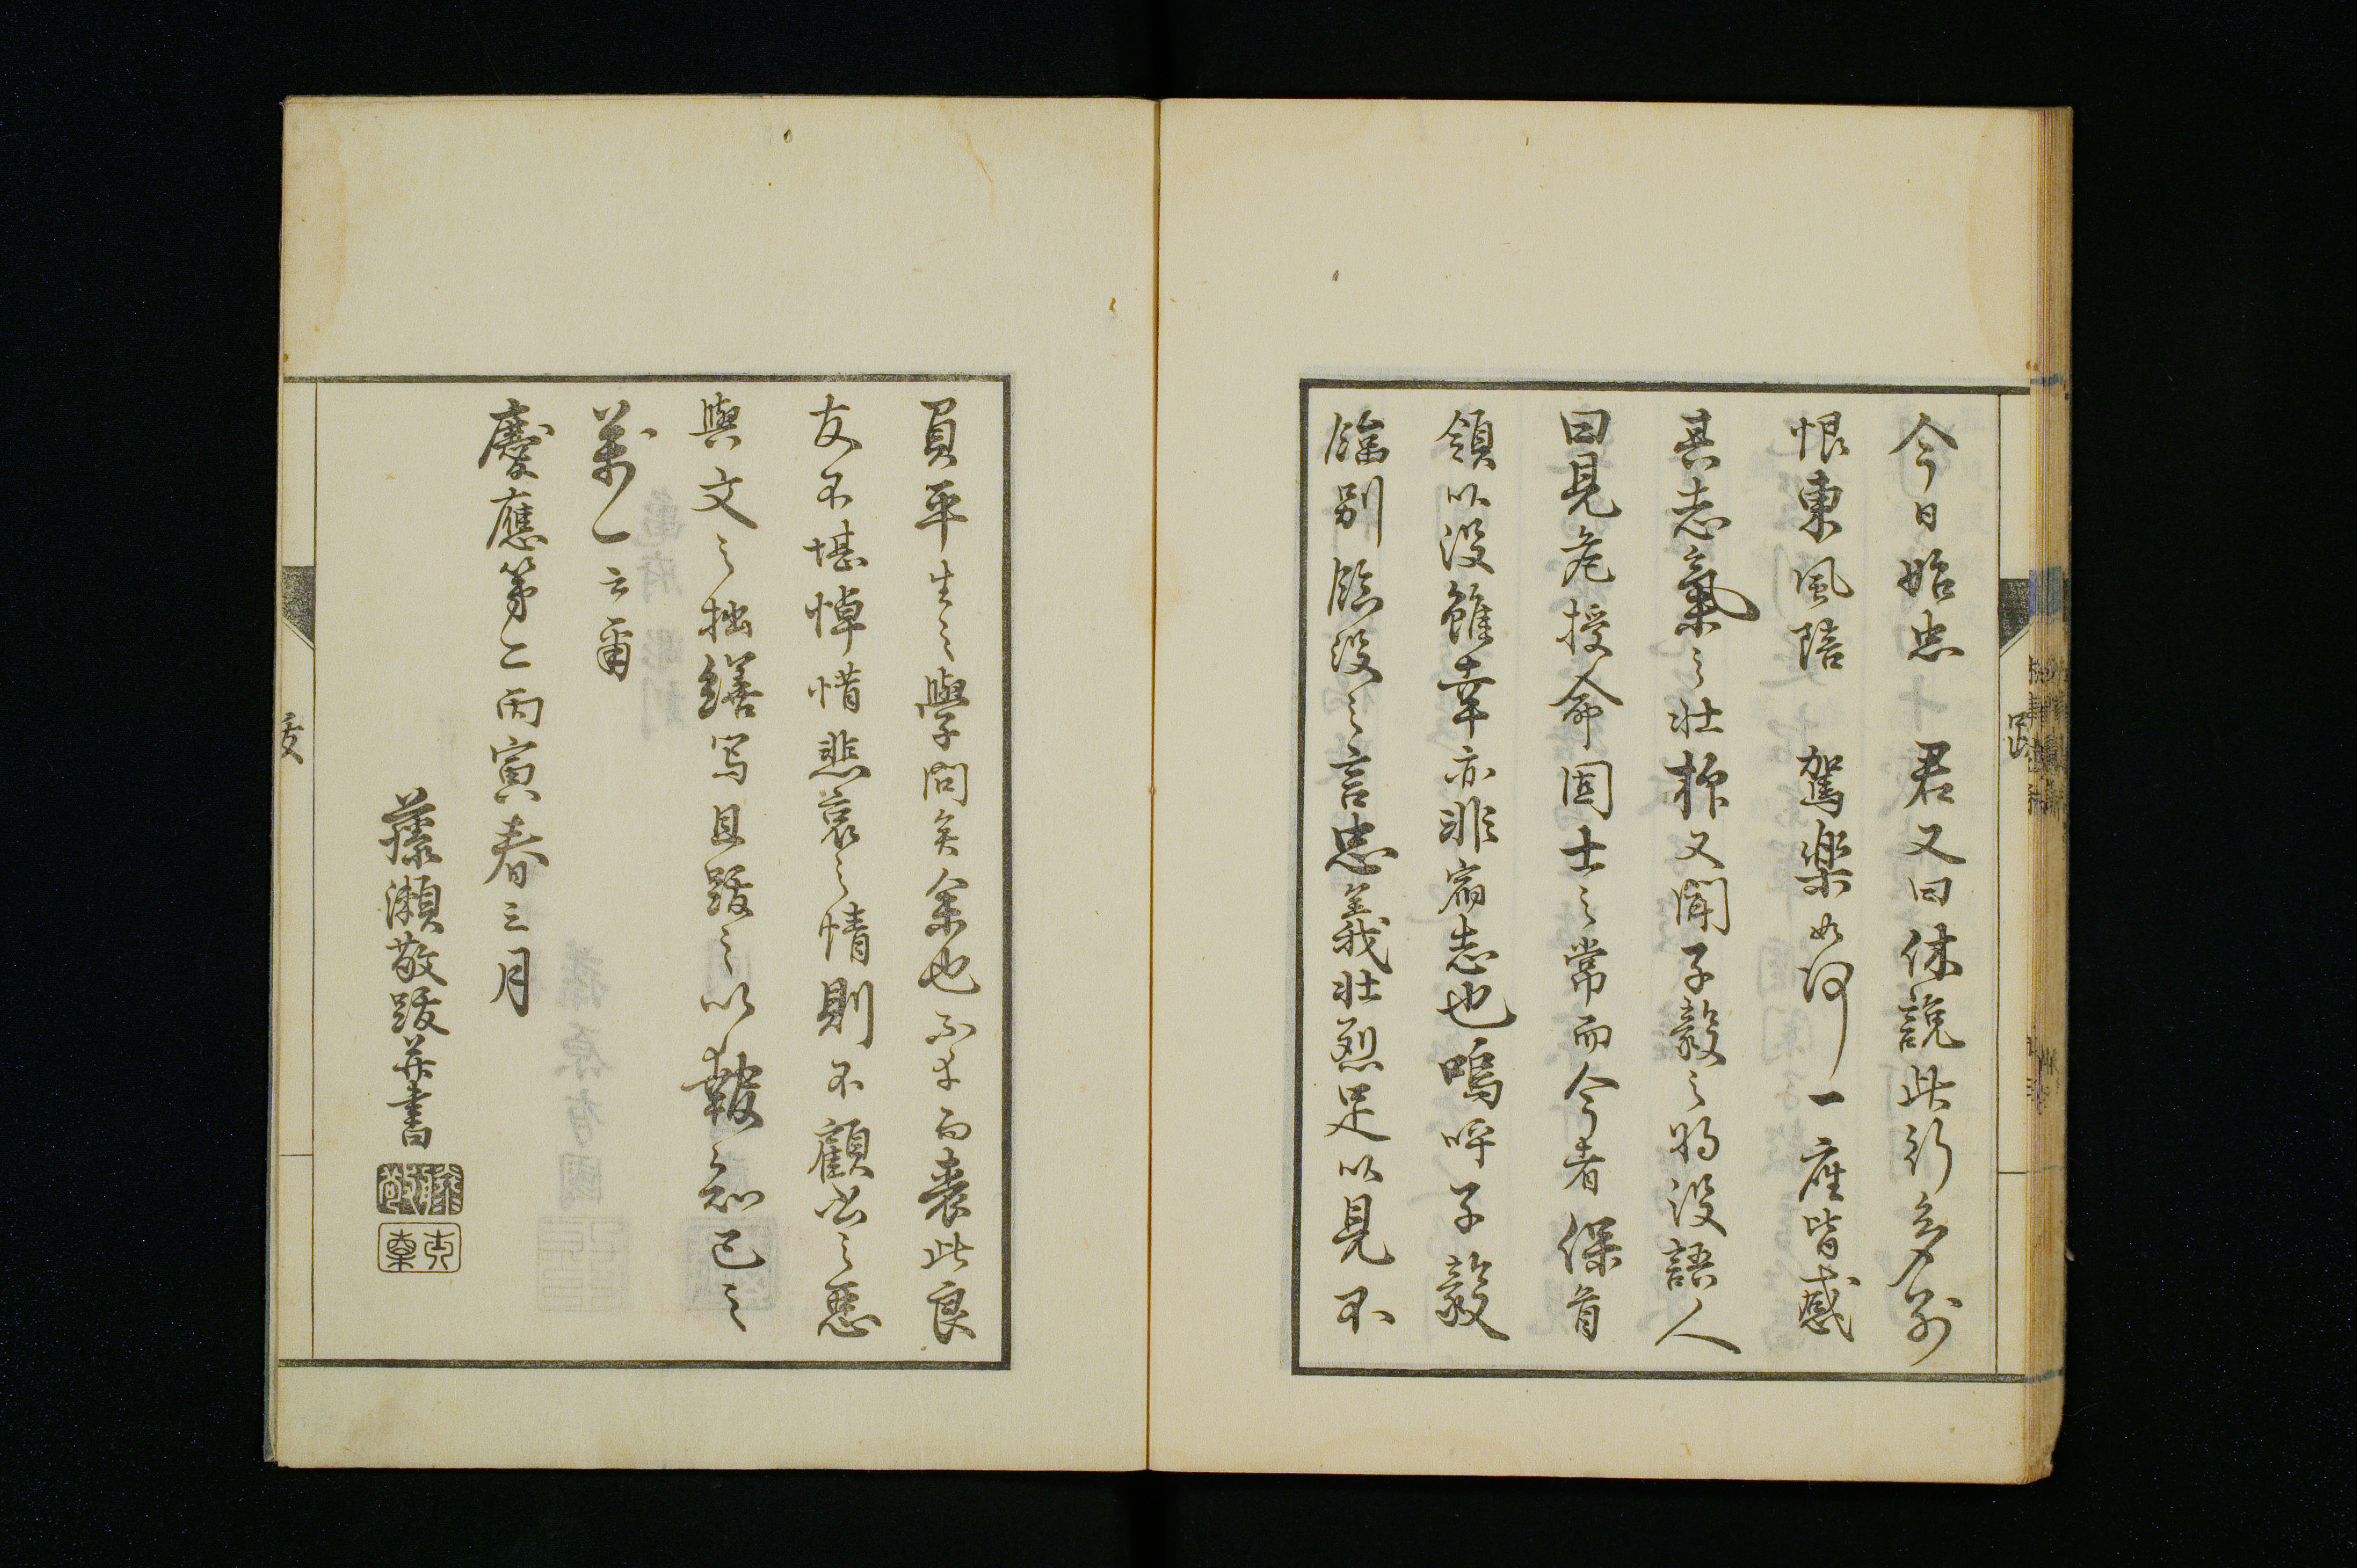 今日始忠 君又曰休說此行多別
恨東風陪 駕樂如何一座皆感
其志氣之壯抑又聞子毅之將沒語人
曰見危授命固士之常而今者保首
領以沒雖幸亦非宿志也嗚呼子毅
臨別臨沒之言忠義壯烈足以見不
負平生之學問矣余也不幸而喪此良
友不堪悼惜悲哀之情則不顧書之惡
與文之拙繕寫且跋之以報知己之
萬一云爾
慶應第二丙寅春三月
藤瀨敬跋并書